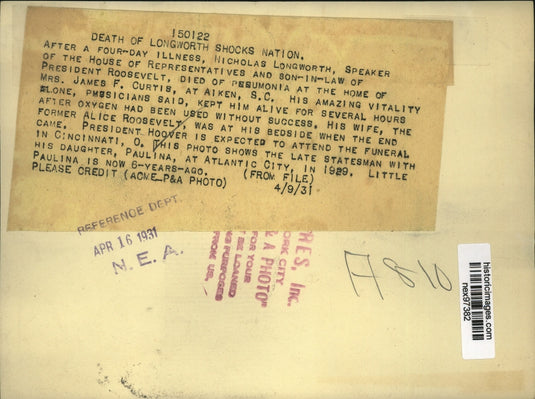 150122
DEATH OF LONGWORTH SHOCKS NATION.
AFTER A FOUR-DAY ILLNESS, NICHOLAS LONGWORTH, SPEAKER
OF THE HOUSE OF REPRESENTATIVES AND SON-IN-LAW OF
PRESIDENT ROOSEVELT, DIED OF PNEUMONIA AT THE HOME OF
MRS. JAMES F. CURTIS, AT AIKEN, S.C. HIS AMAZING VITALITY
ALONE, PHYSICIANS SAID, KEPT HIM ALIVE FOR SEVERAL HOURS
AFTER OXYGEN HAD BEEN USED WITHOUT SUCCESS. HIS WIFE, THE
FORMER ALICE ROOSEVELT, WAS AT HIS BEDSIDE WHEN THE END
CAME. PRESIDENT HOOVER IS EXPECTED TO ATTEND THE FUNERAL
IN CINCINNATI, O. THIS PHOTO SHOWS THE LATE STATESMAN WITH
HIS DAUGHTER, PAULINA, AT ATLANTIC CITY, IN 1929. LITTLE
PAULINA IS NOW 6-YEARS-AGO. (FROM FILE)
PLEASE CREDIT (ACME-P&A PHOTO) 4/9/31
REFERENCE DEPT.
APR 16 1931
N.E.A.
RES, INC.
ORK CITY
& A PHOTO"
FOR YOUR
BE LOANED
PURPOSES
FROM US.
A 810
historicimages.com
nex97382